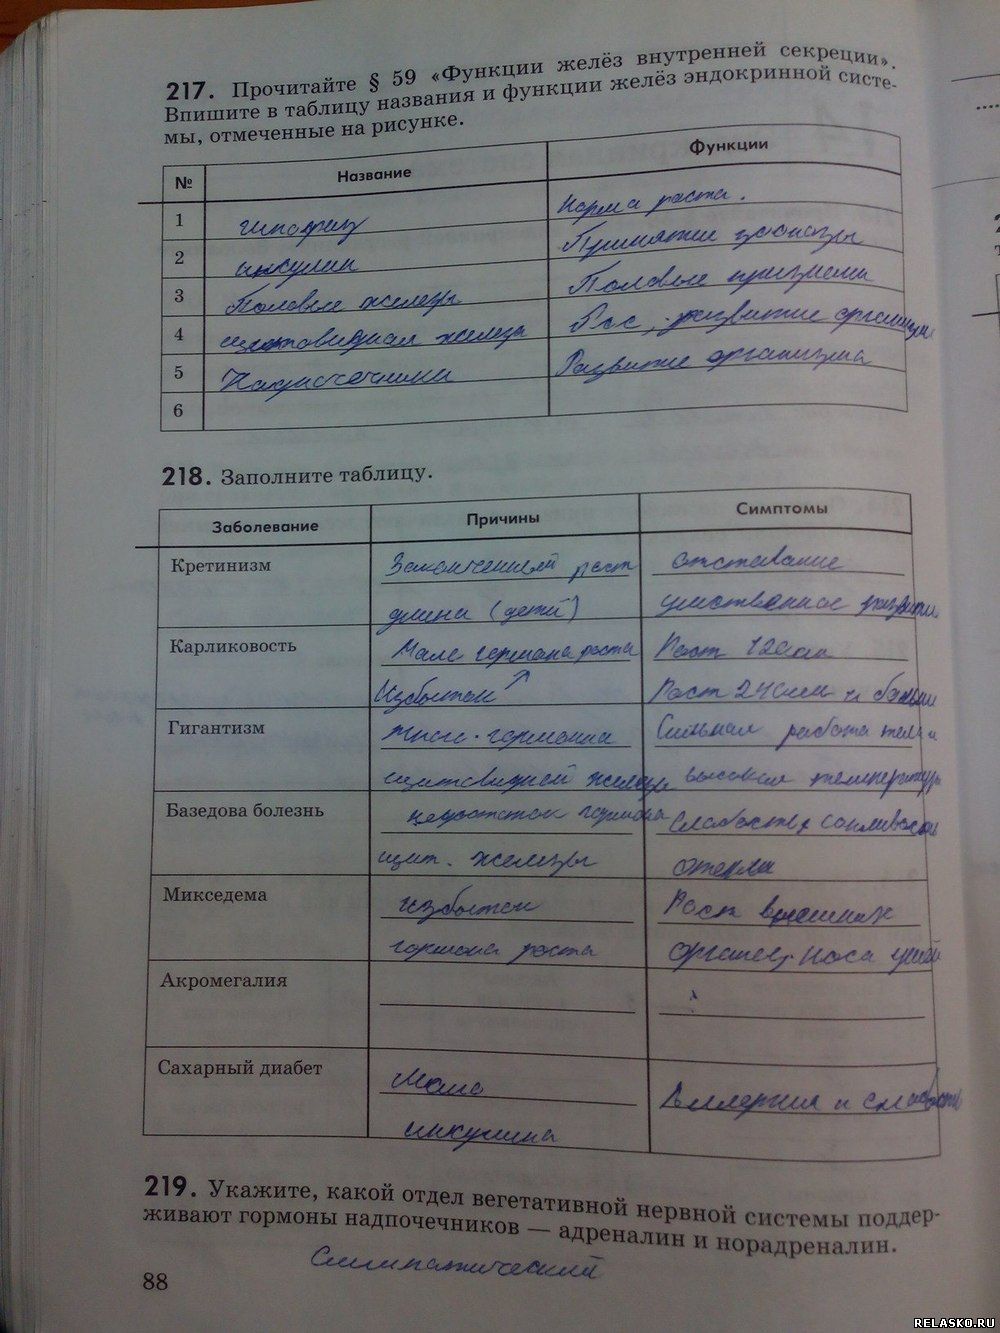 217. Прочитайте § 59 «Функции желёз внутренней секреции».
Впишите в таблицу названия и функции желёз эндокринной систе-
мы, отмеченные на рисунке.
№ Название Функции
1 гипофиз норма роста.
2 инсулин Принятие глюкозы
3 Половые железы Половые признаки
4 щитовидная железа Рос, развитие организм
5 Надпочечники Развитие организма
6
218. Заполните таблицу.
Заболевание Причины Симптомы
Кретинизм рост отставание
длина (дети) умственное
Карликовость Мало гормона роста Рост 120см
Избыток Рост 240см и больше
Гигантизм гормона Сильная работа
щитовидной железы высокая температура
Базедова болезнь недостаток гормона слабость, сонливость
щит. железы отеки
Микседема избыток Рост внешних
гормона роста органов, носа ушей
Акромегалия
Сахарный диабет Мало Аллергия и слабость
инсулина
219. Укажите, какой отдел вегетативной нервной системы поддер-
живают гормоны надпочечников — адреналин и норадреналин.
Симпатический
88
RELASKO.RU